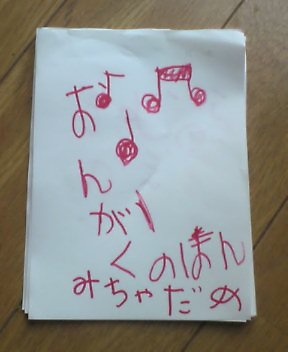 おんがく
のほん
みちゃだめ